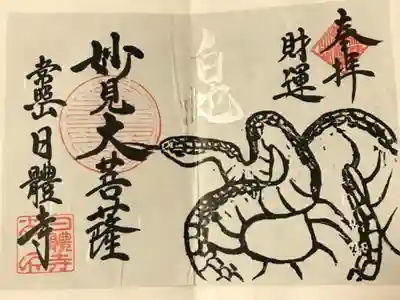 奉拝
財運
白
妙見大菩薩
日體寺
日體寺